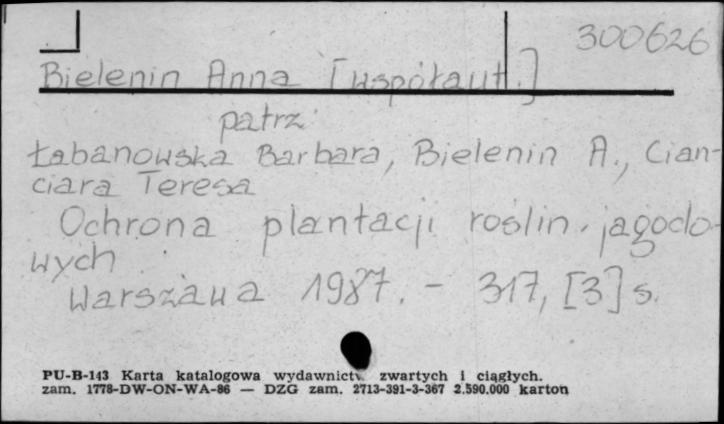 300626
Bielenin Anna [współaut.]
patrz
Łabanowska Barbara, Bielenin A., Cian-
ciara Teresa
Ochrona plantacji roślin jagodo-
wych
Warszawa 1987. - 317, [3] s.
PU-B-143 Karta katalogowa wydawnictw zwartych i ciągłych.
zam. 1778-DW-ON-WA-86 — DZG zam. 2713-391-3-367 2.590.000 karton